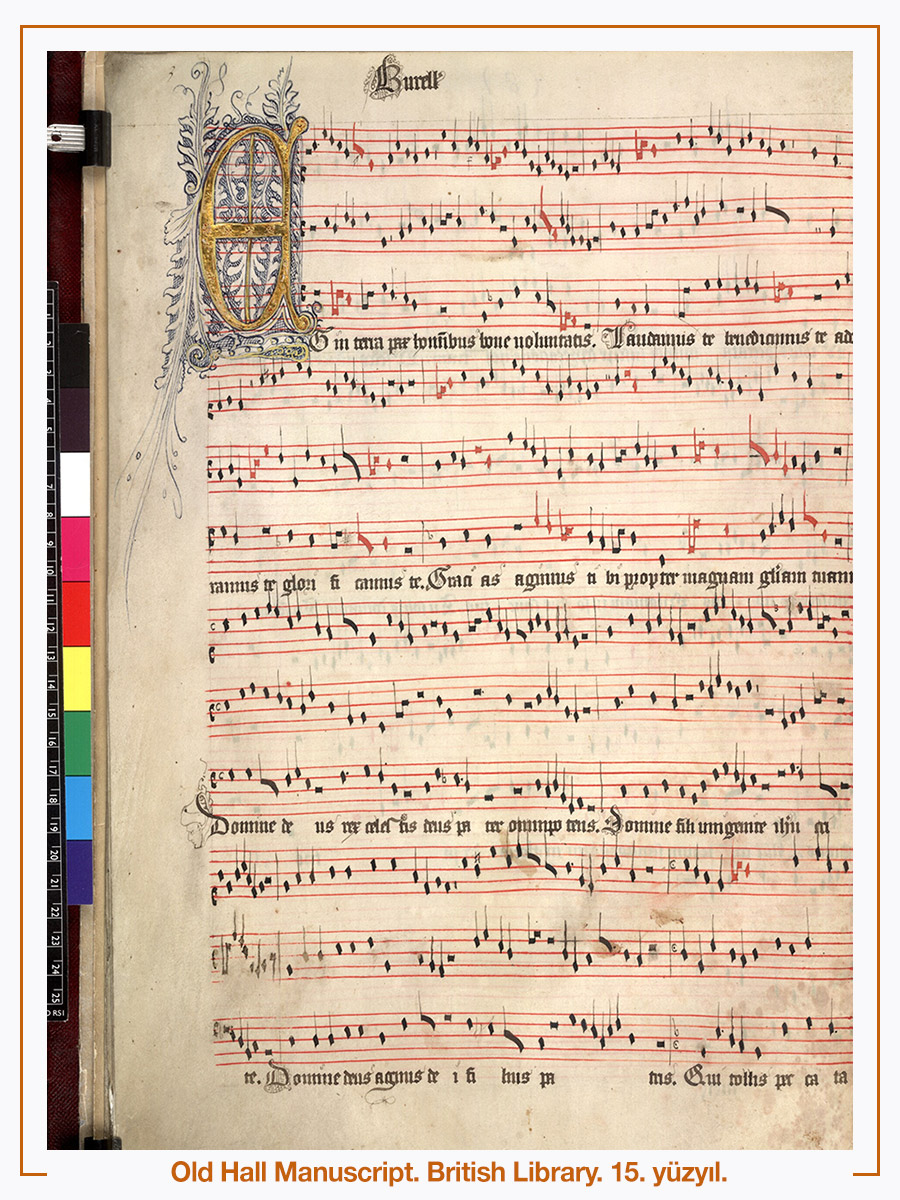 Burell
Et in terra pax hominibus bone uoluntatis. Laudamus te benedicimus te ad
ramus te glori fi camus te. Graci as agimus ti bi propter magnam gliam tuam
Domine de us rex celes tis deus pa ter omnipo tens. Domine fili unigenite
te. Domine deus agnus de i fi lius pa tris. Qui tollis pec ca ta
Old Hall Manuscript. British Library. 15. yüzyıl.